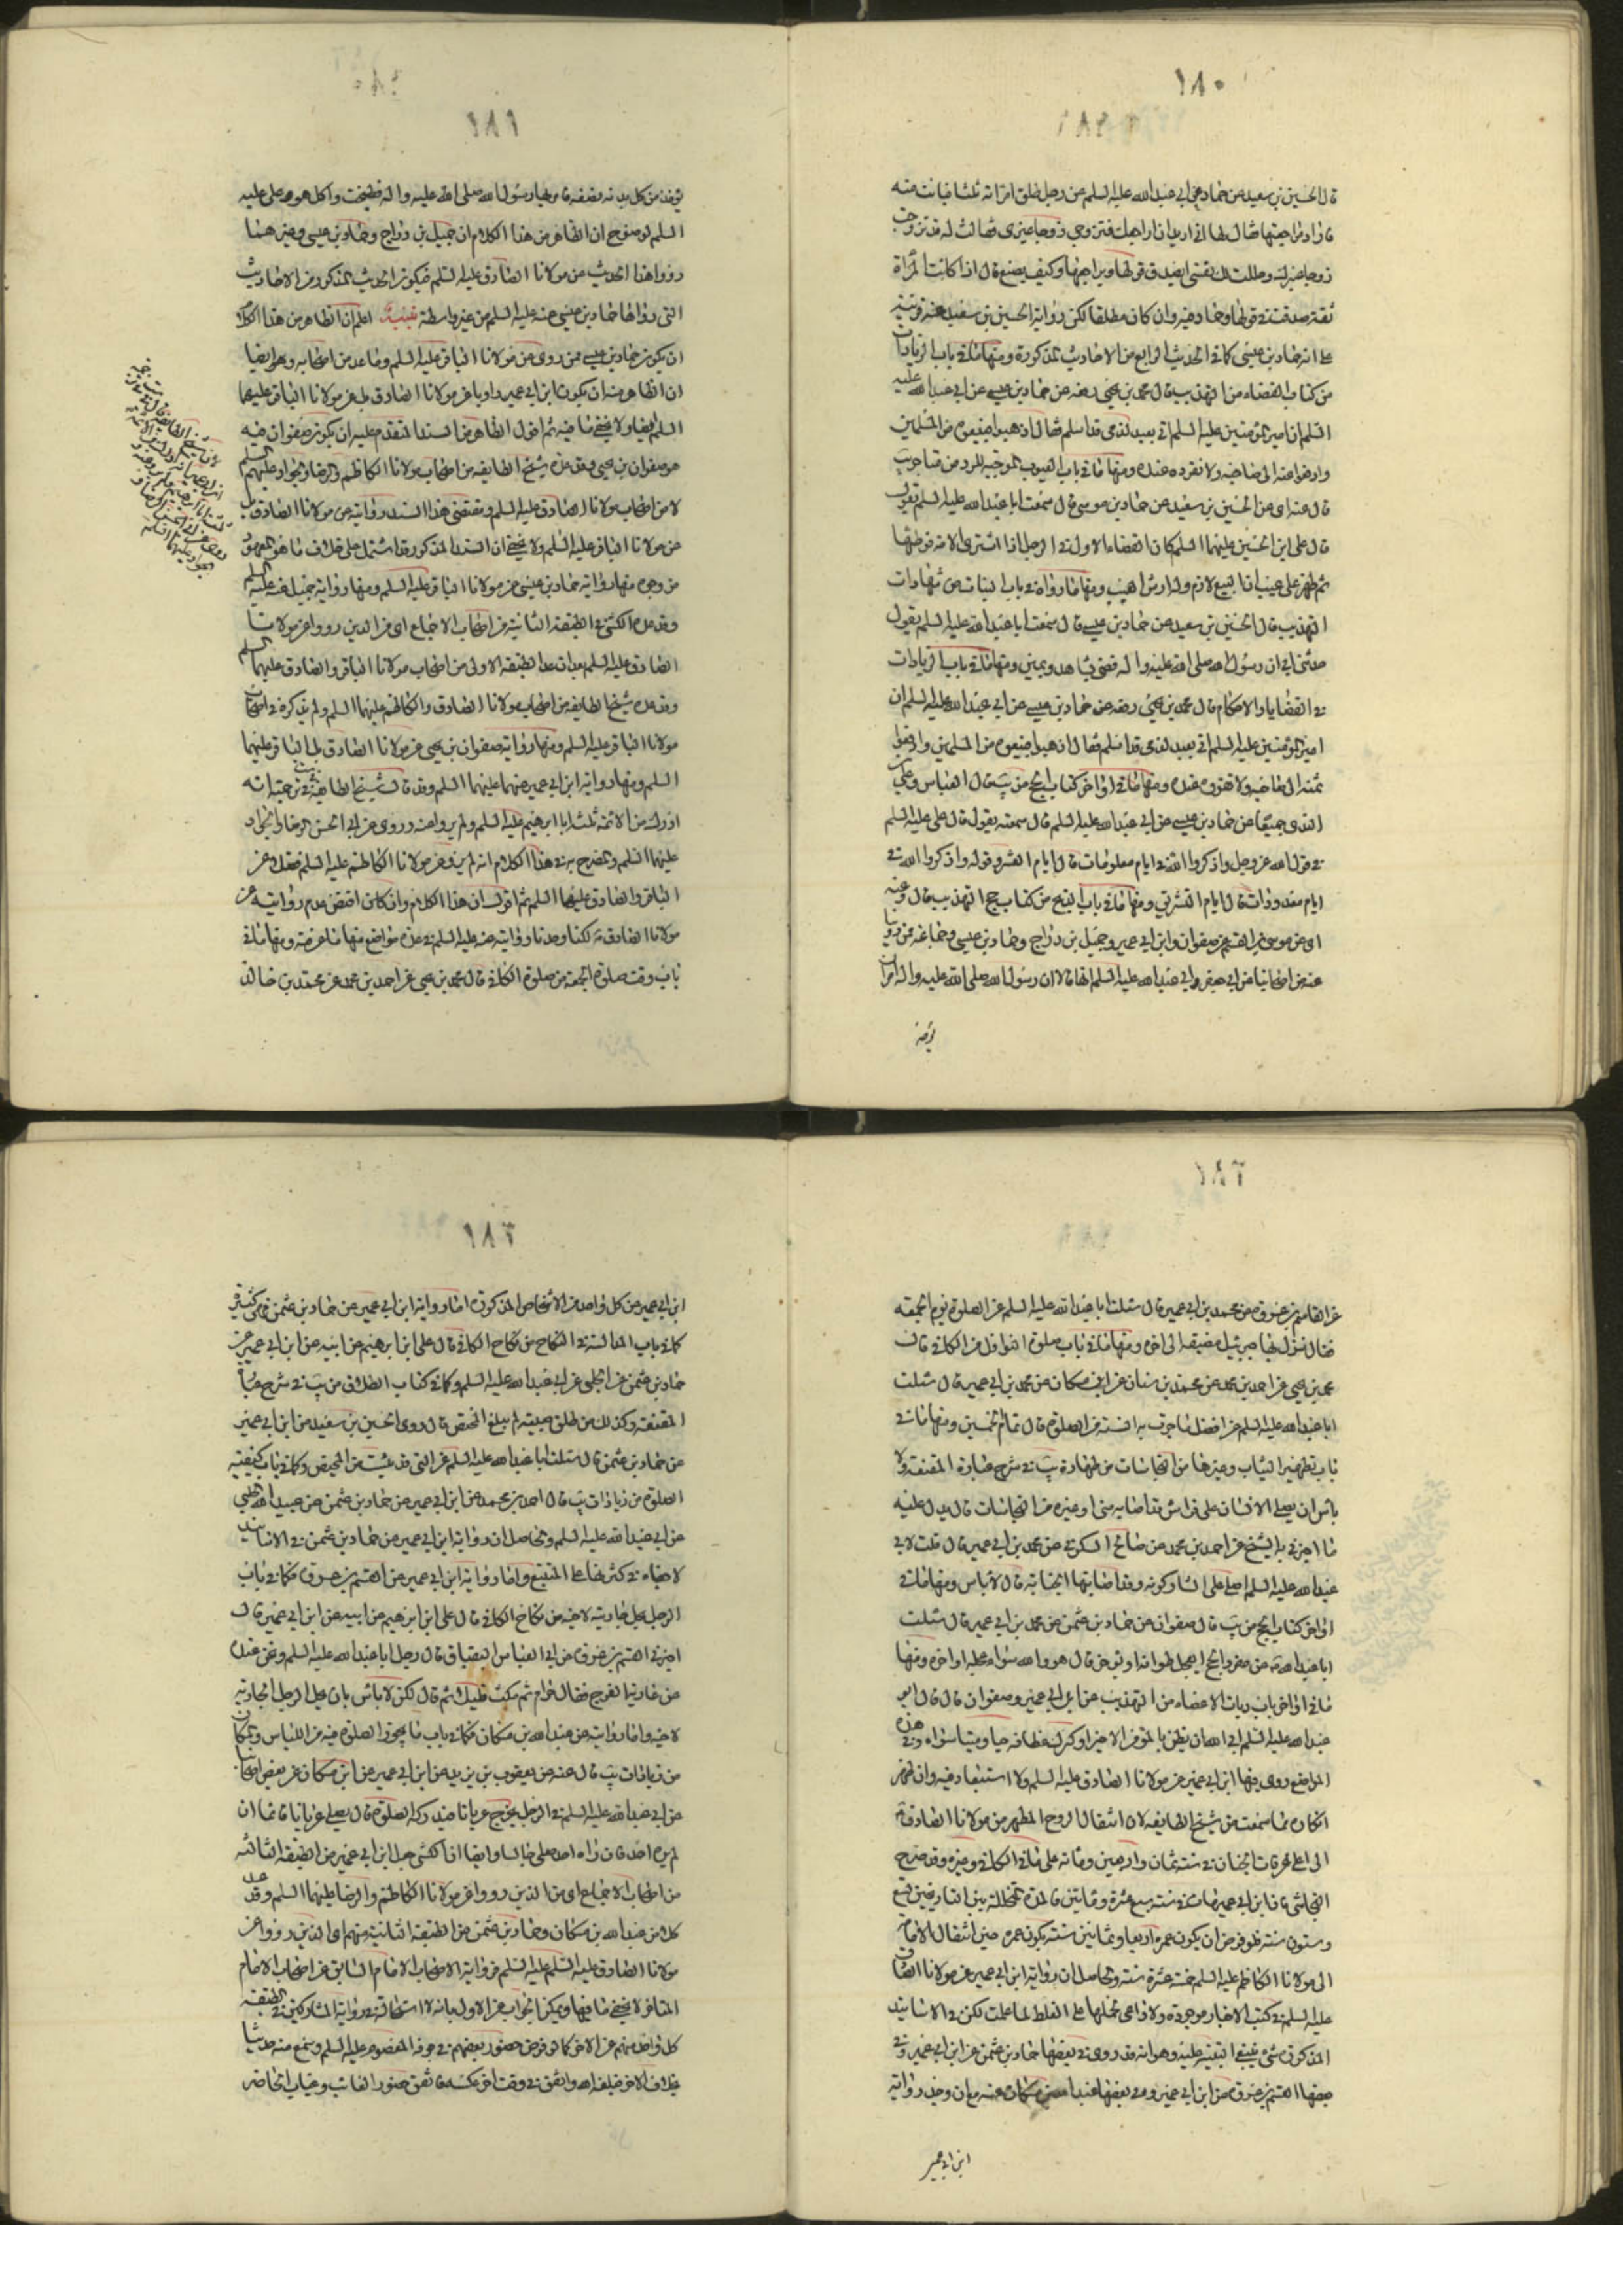 ١٨٠
قال الحسين بن سعيد عن حماد عن ابي عبد الله عليه السلم عن رجل طلق امراته ثلثا فبانت منه
فاراد مراجعتها فقال لها اني اريد ان اراجعك فتزوجي زوجا غيري فقالت له قد تزوجت
زوجا غيرك وحللت لك نفسي ايصدق قولها ويراجعها وكيف يصنع قال اذا كانت المراة
ثقة صدقت في قولها وحماد فيه وان كان مطلقا لكن رواية الحسين بن سعيد عنه قرينة
على انه حماد بن عيسى كما في الحديث الرابع من الاحاديث المذكورة ومنها ما في باب الزيادات
من كتاب القضاء من التهذيب قال محمد بن يحيى رفعه عن حماد بن عيسى عن ابي عبد الله عليه
السلم ان امير المؤمنين عليه السلم اتي بعبد لذمي قد اسلم فقال اذهبوا فبيعوه من المسلمين
وادفعوا ثمنه الى صاحبه ولا تقروه عنده ومنها ما في باب العيوب الموجبة للرد من متاجر يب
قال عنه اي عن الحسين بن سعيد عن حماد بن عيسى قال سمعت ابا عبد الله عليه السلم يقول
قال علي ابن الحسين عليهما السلم كان القضاء الاول في الرجل اذا اشترى الامة فوطئها
ثم ظهر على عيب ان البيع لازم وله ارش العيب ومنها ما رواه في باب البينات من شهادات
التهذيب قال الحسين بن سعيد عن حماد بن عيسى قال سمعت ابا عبد الله عليه السلم يقول
حدثني ابي ان رسول الله صلى الله عليه واله قضى بشاهد ويمين ومنها ما في باب الزيادات
في القضايا والاحكام قال محمد بن يحيى رفعه عن حماد بن عيسى عن ابي عبد الله عليه السلم ان
امير المؤمنين عليه السلم اتي بعبد لذمي قد اسلم فقال اذهبوا فبيعوه من المسلمين وادفعوا
ثمنه الى صاحبه ولا تقروه عنده ومنها ما في اواخر كتاب الحج من يب قال العباس وعلي
السندي جميعا عن حماد بن عيسى عن ابي عبد الله عليه السلم قال سمعته يقول قال علي عليه السلم
في قول الله عز وجل واذكروا الله في ايام معلومات قال ايام العشر وقوله واذكروا الله في
ايام معدودات قال ايام التشريق ومنها ما في باب الذبح من كتاب حج التهذيب قال وعنه
اي عن موسى بن القسم عن صفوان وابن ابي عمير وجميل بن دراج وحماد بن عيسى وجماعة ممن روينا
عنه من اصحابنا عن ابي جعفر وابي عبد الله عليه السلم انهما قالا ان رسول الله صلى الله عليه واله امر ان
يؤخذ
١٨١
يؤخذ من كل بدنة بضعة فامر بها رسول الله صلى الله عليه واله فطبخت واكل هو وعلي عليه
السلم توضيح ان الظاهر من هذا الكلام ان جميل بن دراج وحماد بن عيسى وغيرهما
رووا هذا الحديث من مولانا الصادق عليه السلم فيكون الحديث المذكور من الاحاديث
التي رواها حماد بن عيسى عنه عليه السلم من غير واسطة تنبيه اعلم ان الظاهر من هذا الكلام
ان يكون حماد بن عيسى ممن روى عن مولانا الباقر عليه السلم وما عد من اصحابه وهو ايضا
ان الظاهر منه ان يكون ابن ابي عمير راويا عن مولانا الصادق بل عن مولانا الباقر عليهما
السلم ايضا ولا يخفى ما فيه ثم اقول الظاهر من السند المتقدم عليه ان يكون صفوان فيه
هو صفوان بن يحيى وقد عده شيخ الطايفة من اصحاب مولانا الكاظم والرضا والجواد عليهم السلم
لا من اصحاب مولانا الصادق عليه السلم ومقتضى هذا السند روايته عن مولانا الصادق بل
عن مولانا الباقر عليه السلم ولا يخفى ان السند المذكور قد اشتمل على خلاف ما هو المعهود
من وجوه منها رواية حماد بن عيسى عن مولانا الباقر عليه السلم ومنها رواية جميل عنه عليه السلم
وقد عده الكشي في الطبقة الثانية من اصحاب الاجماع اي من الذين رووا عن مولانا
الصادق عليه السلم بعد ان عد الطبقة الاولى من اصحاب مولانا الباقر والصادق عليهما السلم
وقد عده شيخ الطايفة من اصحاب مولانا الصادق والكاظم عليهما السلم ولم يذكره في اصحاب
مولانا الباقر عليه السلم ومنها رواية صفوان بن يحيى عن مولانا الصادق بل الباقر عليهما
السلم ومنها رواية ابن ابي عمير عنهما عليهما السلم وقد قال شيخ الطايفة في ترجمته انه
ادرك من الائمة ثلثة ابا ابرهيم عليه السلم ولم يرو عنه وروى عن ابي الحسن الرضا والجواد
عليهما السلم والمصرح به في هذا الكلام انه لم يرو عن مولانا الكاظم عليه السلم فضلا عن
الباقر والصادق عليهما السلم ثم اقول ان هذا الكلام وان كان اقتضى عدم روايته عن
مولانا الصادق لكنا وجدنا روايته عنه عليه السلم في عدة مواضع منها ما عرفته ومنها ما في
باب وقت صلوة الجمعة من صلوة الكافي قال محمد بن يحيى عن احمد بن محمد عن محمد بن خالد
١٨٢
عن القاسم بن عروة عن محمد بن ابي عمير قال سئلت ابا عبد الله عليه السلم عن الصلوة يوم الجمعة
فقال نزل بها جبرئيل مضيقة الى اخره ومنها ما في باب صلوة النوافل من الكافي قال
محمد بن يحيى عن احمد بن محمد عن محمد بن سنان عن ابن مسكان عن محمد بن ابي عمير قال سئلت
ابا عبد الله عليه السلم عن افضل ما جرت به السنة من الصلوة قال تمام الخمسين ومنها ما في
باب تطهير الثياب وغيرها من النجاسات من طهارة يب في شرح عبارة المقنعة ولا
باس ان يصلي الانسان على فراش قد اصابه مني او غيره من النجاسات قال يدل عليه
ما اخبرني به الشيخ عن احمد بن محمد عن صالح السكوني عن محمد بن ابي عمير قال قلت لابي
عبد الله عليه السلم اصلي على الشاذكونة وقد اصابتها الجنابة قال لا باس ومنها ما في
اواخر كتاب الحج من يب قال صفوان عن حماد بن عثمن عن محمد بن ابي عمير قال سئلت
ابا عبد الله عن مفرد الحج ايعجل طوافه او يؤخر قال هو والله سواء عجله او اخره ومنها
ما في اواخر باب ديات الاعضاء من التهذيب عن ابن ابي عمير وصفوان قال قال ابو
عبد الله عليه السلم ابى الله ان يظن بالمؤمن الا خيرا وكسرك عظامه حيا وميتا سواء وفي هذه
المواضع روى فيها ابن ابي عمير عن مولانا الصادق عليه السلم ولا استبعاد فيه وان ظهر
انكاره مما سمعت من شيخ الطايفة لان انتقال الروح المطهر من مولانا الصادق
الى اعلى غرفات الجنان في سنة ثمان واربعين ومائة على ما في الكافي وغيره وقد صرح
النجاشي بان ابن ابي عمير مات في سنة سبع عشرة ومائتين فالمدة المتخللة بين التاريخين تسع
وستون سنة فلو فرض ان يكون عمره اربعا وثمانين سنة يكون عمره حين انتقال الامامة
الى مولانا الكاظم عليه السلم خمسة عشرة سنة والحاصل ان رواية ابن ابي عمير عن مولانا الصادق
عليه السلم في كتب الاخبار موجودة ولا داعي لحملها على الغلط لما علمت لكن في الاسانيد
المذكورة شئ ينبغي التنبيه عليه وهو انه قد روى في بعضها حماد بن عثمن عن ابن ابي عمير وفي
بعضها القسم بن عروة عن ابن ابي عمير وفي بعضها عبد الله بن مسكان عنه مع ان وجدنا رواية
ابن ابي عمير
١٨٣
ابن ابي عمير عن كل واحد من الاشخاص المذكورة اما رواية ابن ابي عمير عن حماد بن عثمن فهي كثيرة
كما في باب المغالبة في النكاح من نكاح الكافي قال علي ابن ابرهيم عن ابيه عن ابن ابي عمير عن
حماد بن عثمن عن الحلبي عن ابي عبد الله عليه السلم وكما في كتاب الطلاق من يب في شرح عبارة
المقنعة وكذلك من طلق صبية لم يبلغ المحيض قال روى الحسين بن سعيد عن ابن ابي عمير
عن حماد بن عثمن قال سئلت ابا عبد الله عليه السلم عن التي قد يئست من المحيض وكما في باب كيفية
الصلوة من زيادات يب قال احمد بن محمد عن ابن ابي عمير عن حماد بن عثمن عن عبيد الله الحلبي
عن ابي عبد الله عليه السلم والحاصل ان رواية ابن ابي عمير عن حماد بن عثمن في الاسانيد
لا خفاء في كثرتها على المتتبع واما رواية ابن ابي عمير عن القسم بن عروة فكما في باب
الرجل يحل جاريته لاخيه من نكاح الكافي قال علي ابن ابرهيم عن ابيه عن ابن ابي عمير قال
اخبرني القسم بن عروة عن ابي العباس البقباق قال سئل رجل ابا عبد الله عليه السلم ونحن عنده
عن عارية الفرج فقال حرام ثم مكث قليلا ثم قال لكن لا باس بان يحل الرجل الجارية
لاخيه واما روايته عن عبد الله بن مسكان فكما في باب ما يجوز الصلوة فيه من اللباس والمكان
من زيادات يب قال عنه عن يعقوب بن يزيد عن ابن ابي عمير عن ابن مسكان عن بعض اصحابنا
عن ابي عبد الله عليه السلم في الرجل يخرج عريانا فيدركه الصلوة قال يصلي عريانا قائما ان
لم يره احد فان راه احد صلى جالسا وايضا ان الكشي جعل ابن ابي عمير من الطبقة الثالثة
من اصحاب الاجماع اي من الذين رووا عن مولانا الكاظم والرضا عليهما السلم وقد عد
كلا من عبد الله بن مسكان وحماد بن عثمن من الطبقة الثانية منهم اي الذين رووا عن
مولانا الصادق عليه السلم عليه السلم فرواية الاصحاب الامام السابق عن اصحاب الامام
المتاخر لا يخفى ما فيها ويمكن الجواب عن الاول بانه لا استحالة في رواية المشاركين في الطبقة
كل واحد منهم عن الاخر كما لو فرض حضور بعضهم في جوف المعصوم عليه السلم وسمع منه حديثا
بخلاف الاخر فبلغه اليه واتفق في وقت اخر عكسه فاتفق حضور الغائب وغياب الحاضر